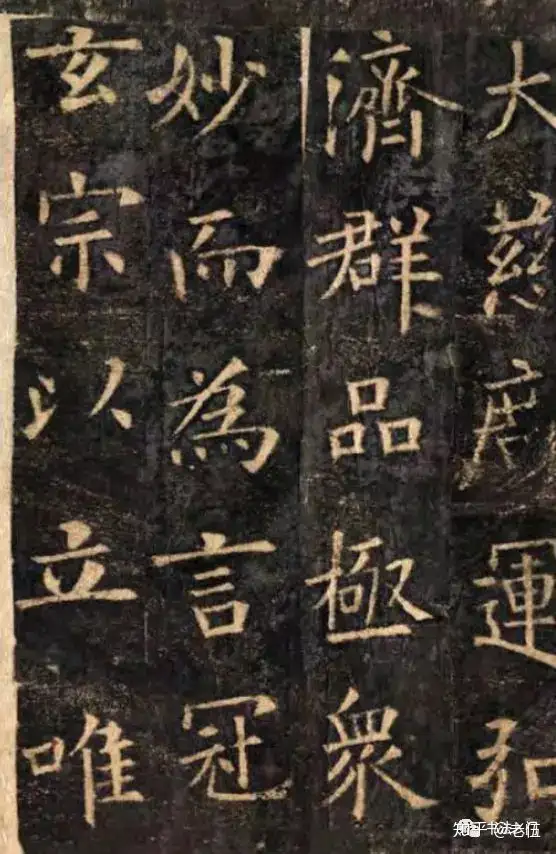 大慈度運弘
濟群品極衆
妙而為言冠
玄宗以立唯
知乎 @老伍